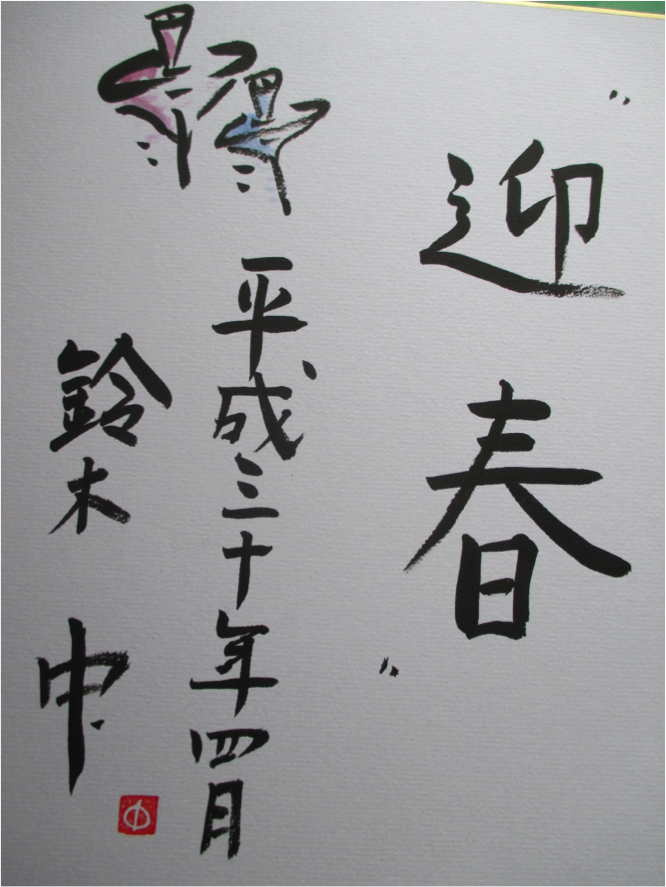 〝迎春〟
平成三十年四月
鈴木 中